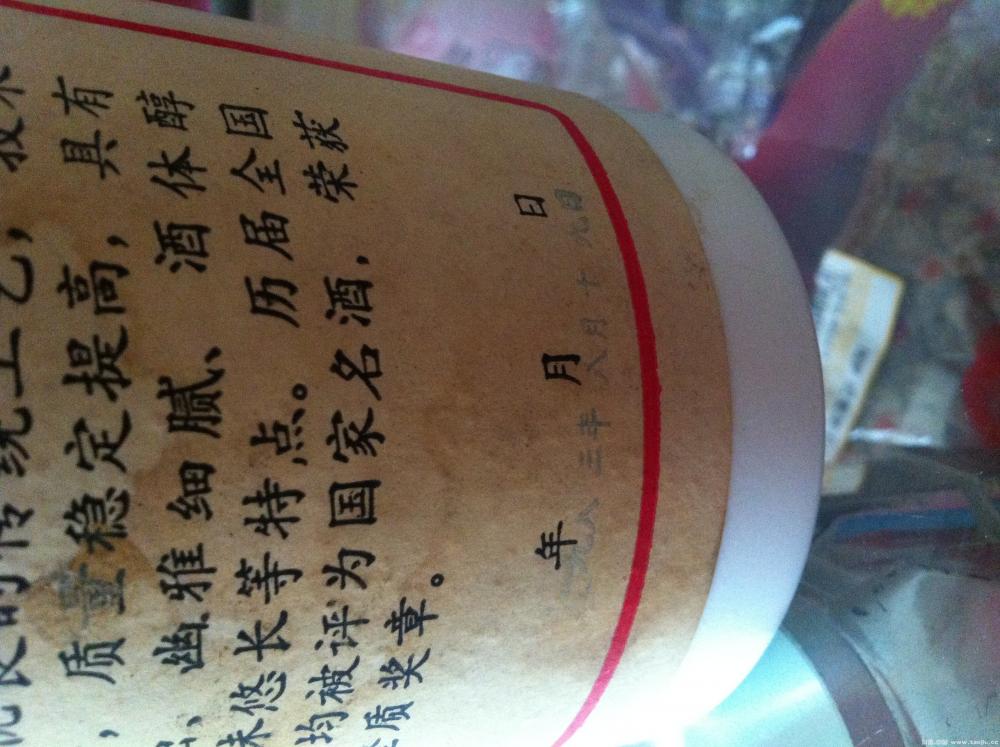 良的传统工艺，技术
，质量稳定提高，具有
，幽雅细腻、酒体醇
味悠长等特点。历届全国
均被评为国家名酒，荣获
金质奖章。
年 月 日
一九八三年八月十九日